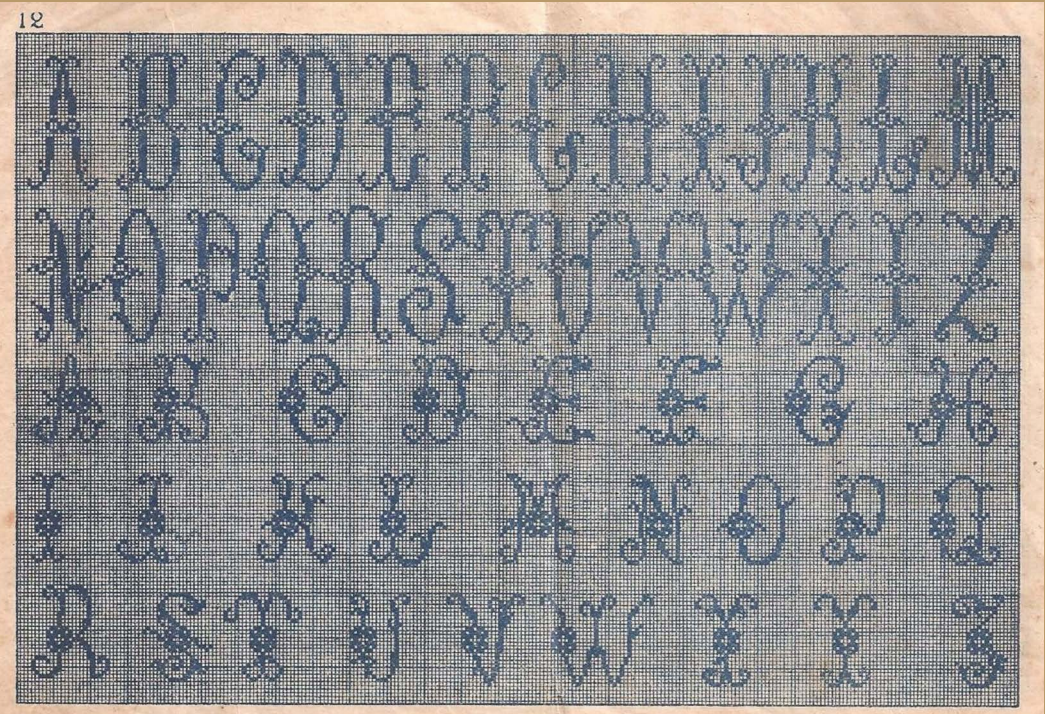 12
A B C D E F G H I J K L M
N O P Q R S T U V W X Y Z
A B C D E F G H
I J K L M N O P Q
R S T U V W X Y Z